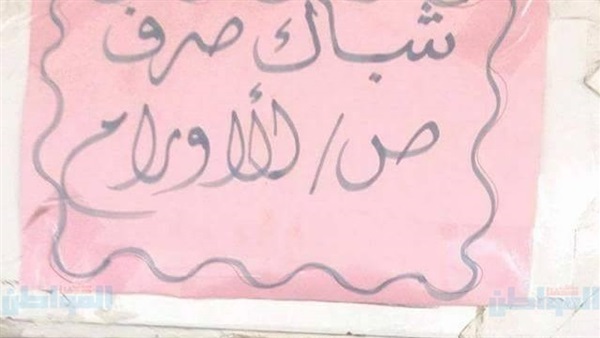 شباك صرف
ص/ الأورام
المواطن
المواطن